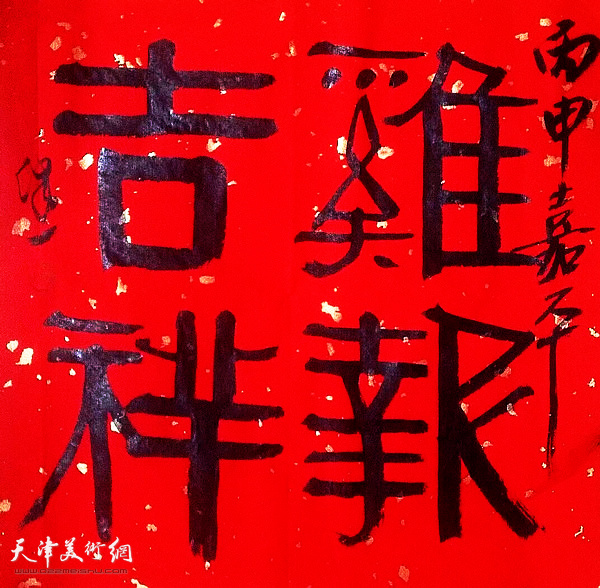 丙申嘉平
雞報
吉祥
天津美術網